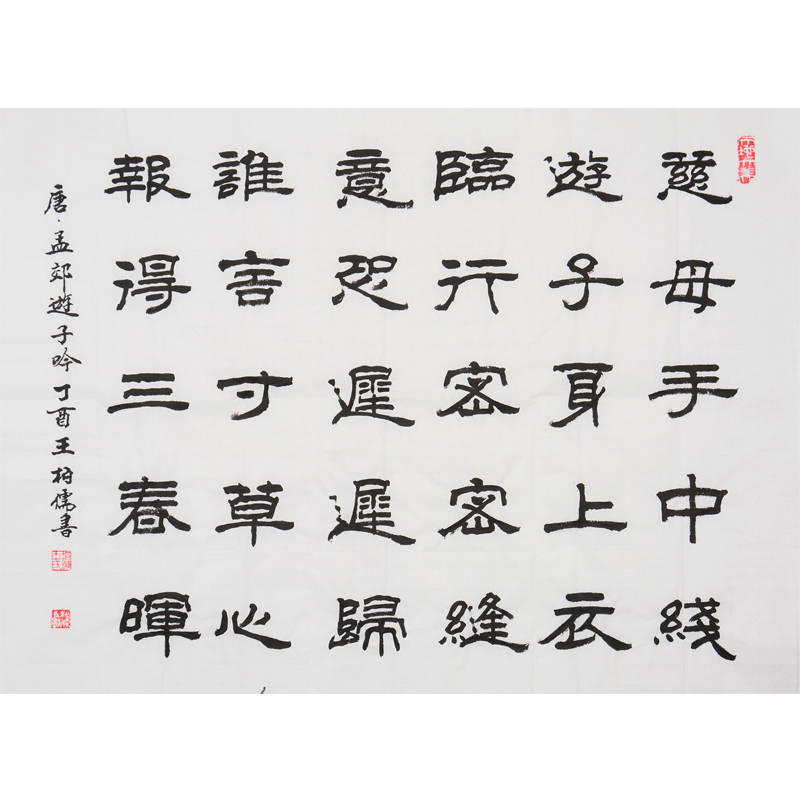 慈母手中綫
遊子身上衣
臨行密密縫
意恐遲遲歸
誰言寸草心
報得三春暉
唐·孟郊遊子吟丁酉王柏儒書